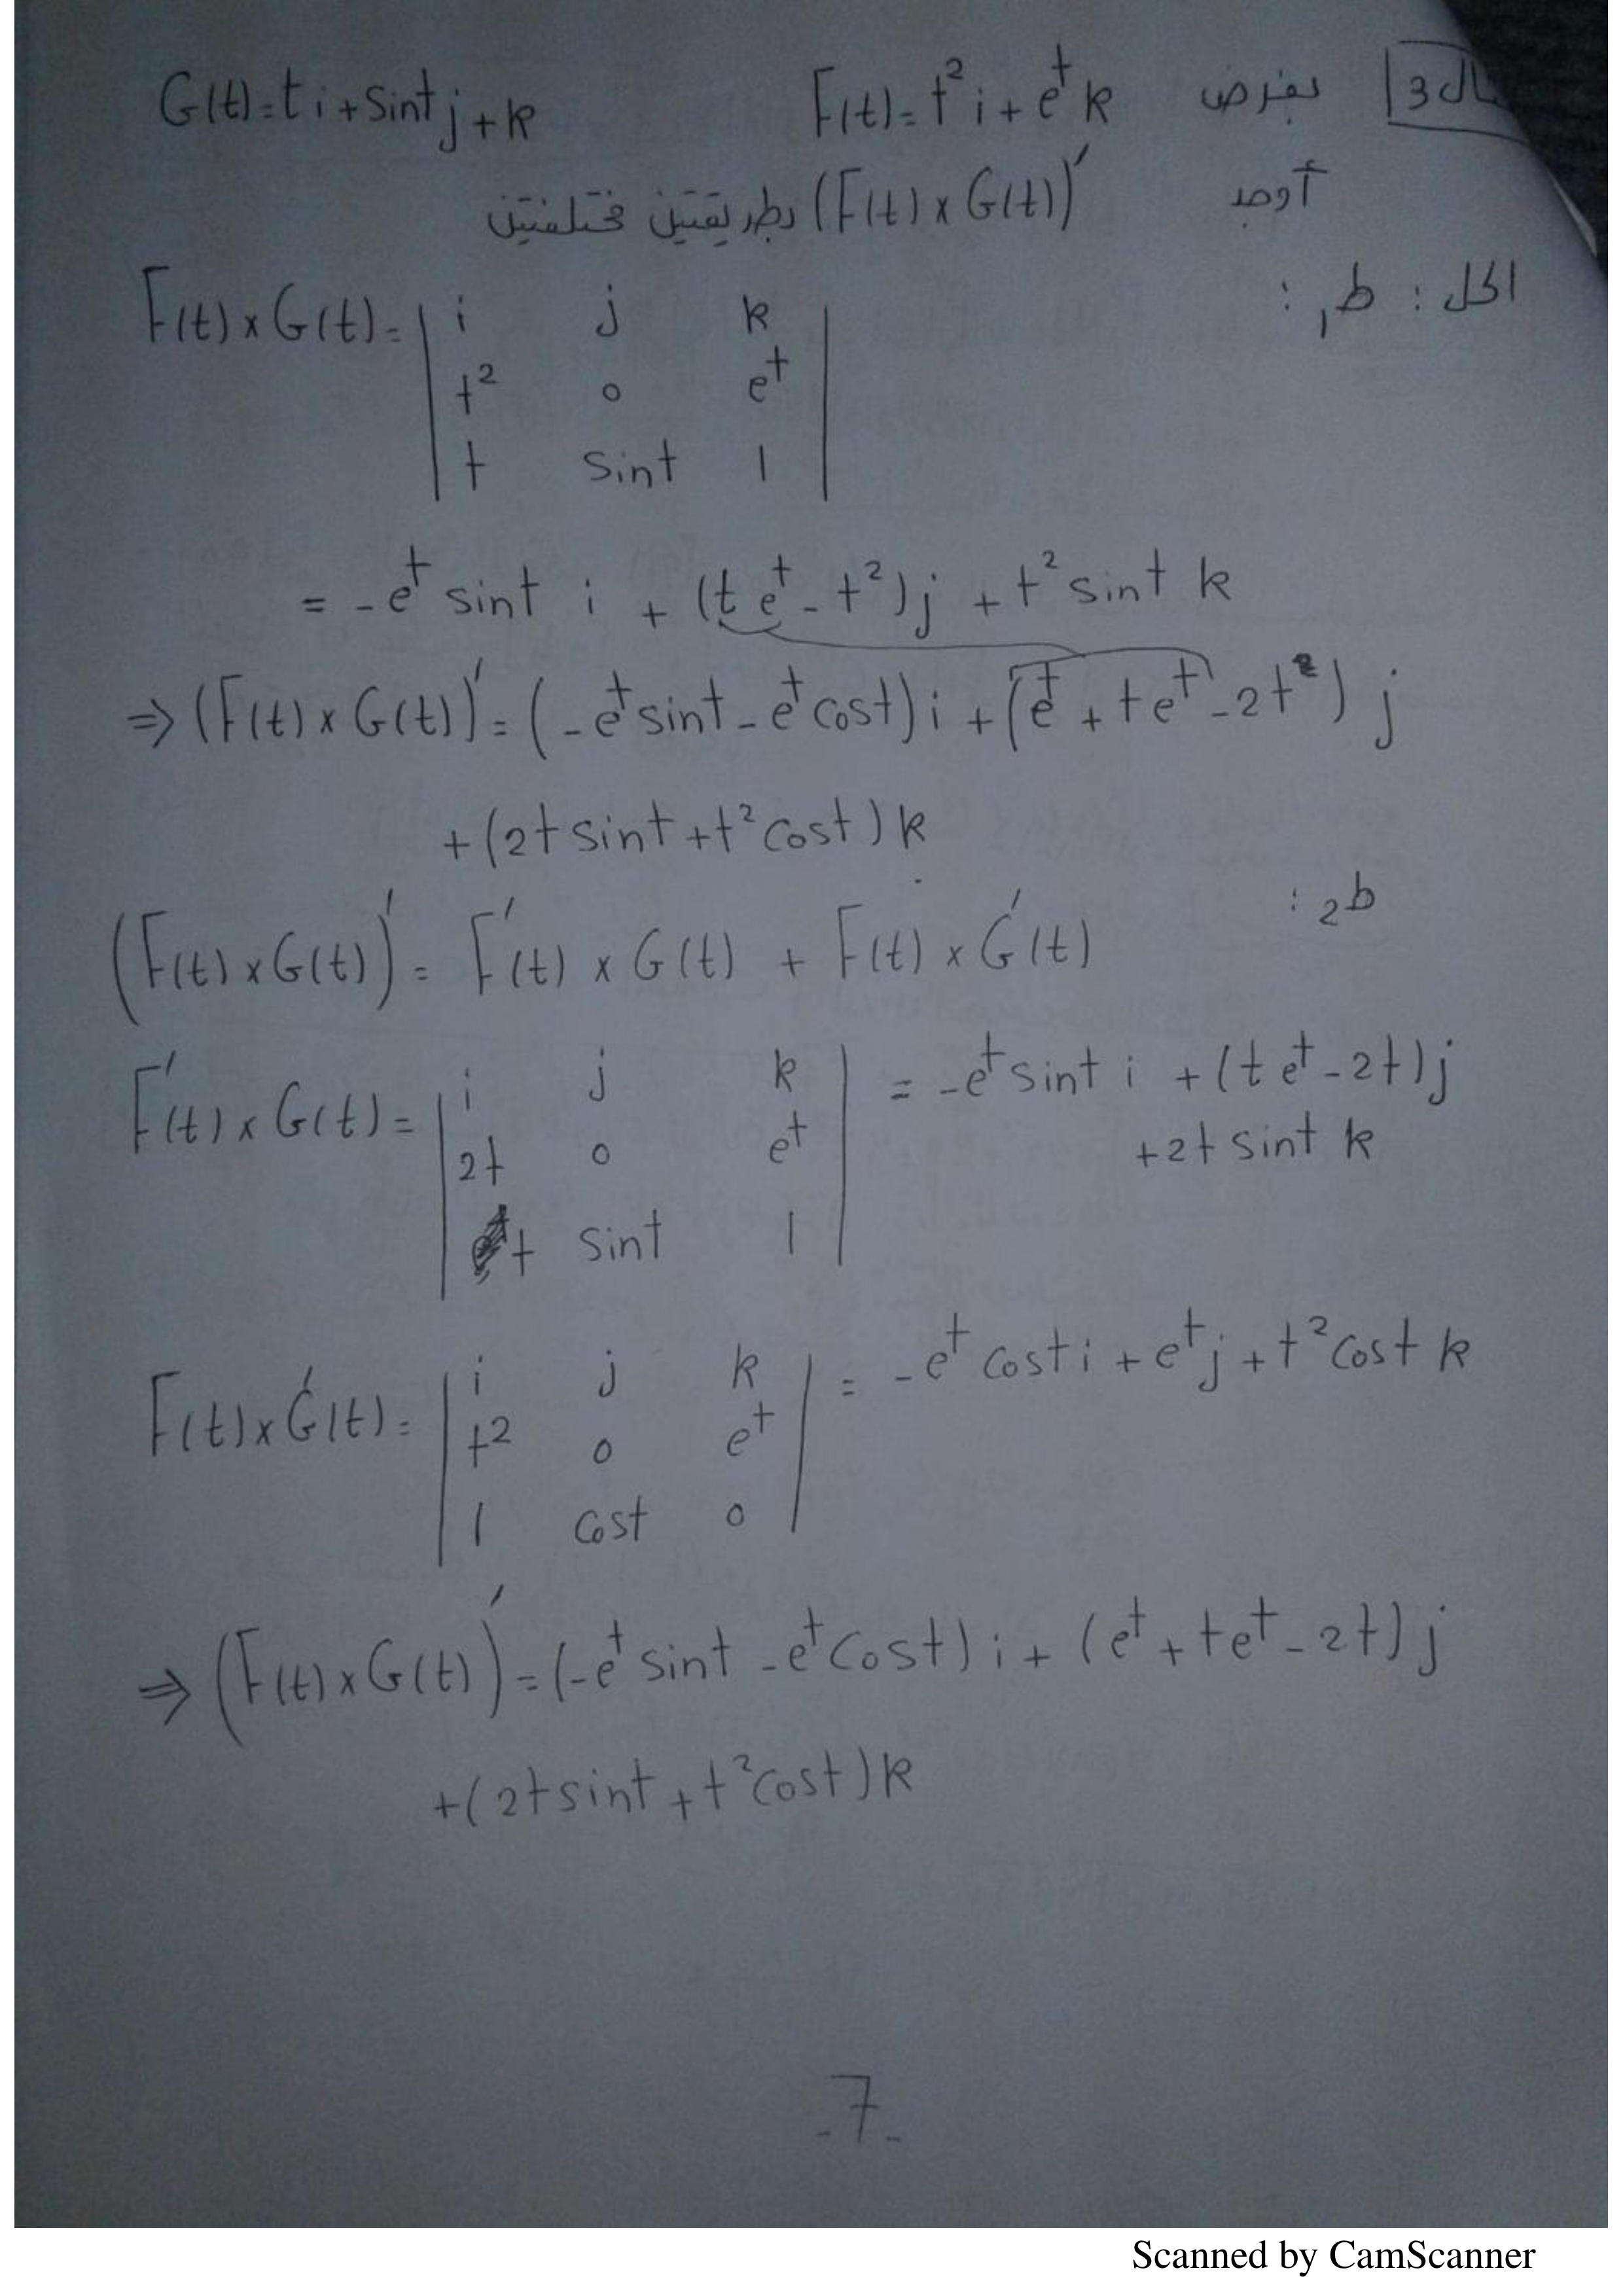 ال 3 بفرض F(t)=t² i + e^t k G(t)=t i + sint j + k
أوجد (F(t) × G(t))′ بطريقتين مختلفتين
الحل : ط₁ :
F(t) × G(t) = | i j k |
| t² 0 e^t |
| t sint 1 |
= -e^t sint i + (t e^t - t²) j + t² sint k
⇒ (F(t) × G(t))′ = (-e^t sint - e^t cost) i + (e^t + t e^t - 2t) j
+ (2t sint + t² cost) k
ط₂ :
(F(t) × G(t))′ = F′(t) × G(t) + F(t) × G′(t)
F′(t) × G(t) = | i j k | = -e^t sint i + (t e^t - 2t) j
| 2t 0 e^t | + 2t sint k
| t sint 1 |
F(t) × G′(t) = | i j k | = -e^t cost i + e^t j + t² cost k
| t² 0 e^t |
| 1 cost 0 |
⇒ (F(t) × G(t))′ = (-e^t sint - e^t cost) i + (e^t + t e^t - 2t) j
+ (2t sint + t² cost) k
-7-
Scanned by CamScanner